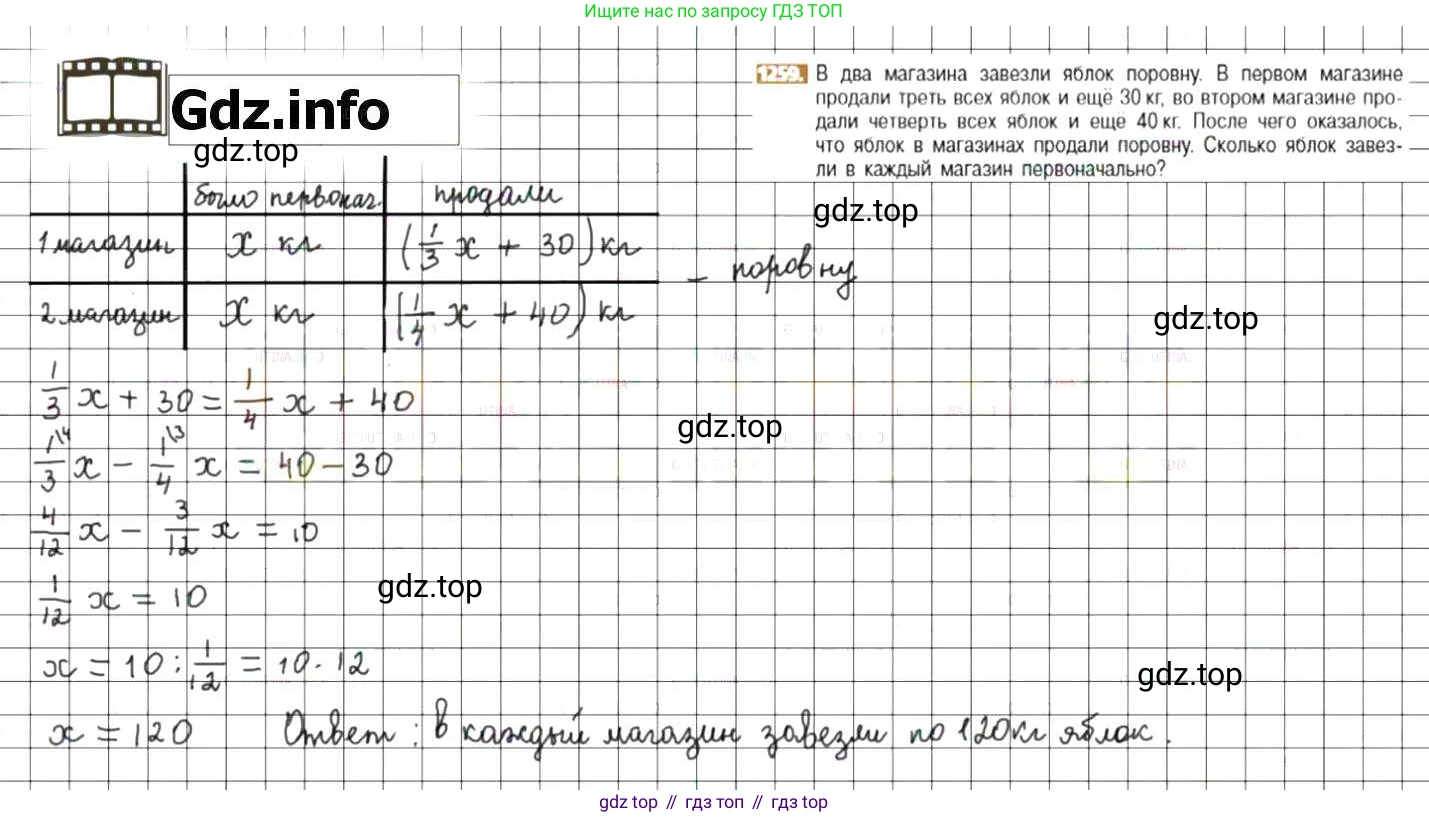 Ищите нас по запросу ГДЗ ТОП
Gdz.info
gdz.top
1259. В два магазина завезли яблок поровну. В первом магазине
продали треть всех яблок и ещё 30 кг, во втором магазине про-
дали четверть всех яблок и ещё 40 кг. После чего оказалось,
что яблок в магазинах продали поровну. Сколько яблок завез-
ли в каждый магазин первоначально?
gdz.top
было первонач. продали
1 магазин x кг (1/3 x + 30) кг
– поровну
2 магазин x кг (1/4 x + 40) кг
gdz.top
1/3 x + 30 = 1/4 x + 40
gdz.top
1\4/3 x – 1\3/4 x = 40 – 30
4/12 x – 3/12 x = 10
1/12 x = 10
gdz.top
x = 10 : 1/12 = 10 · 12
gdz.top
x = 120 Ответ: в каждый магазин завезли по 120 кг яблок.
gdz top // гдз топ // gdz top